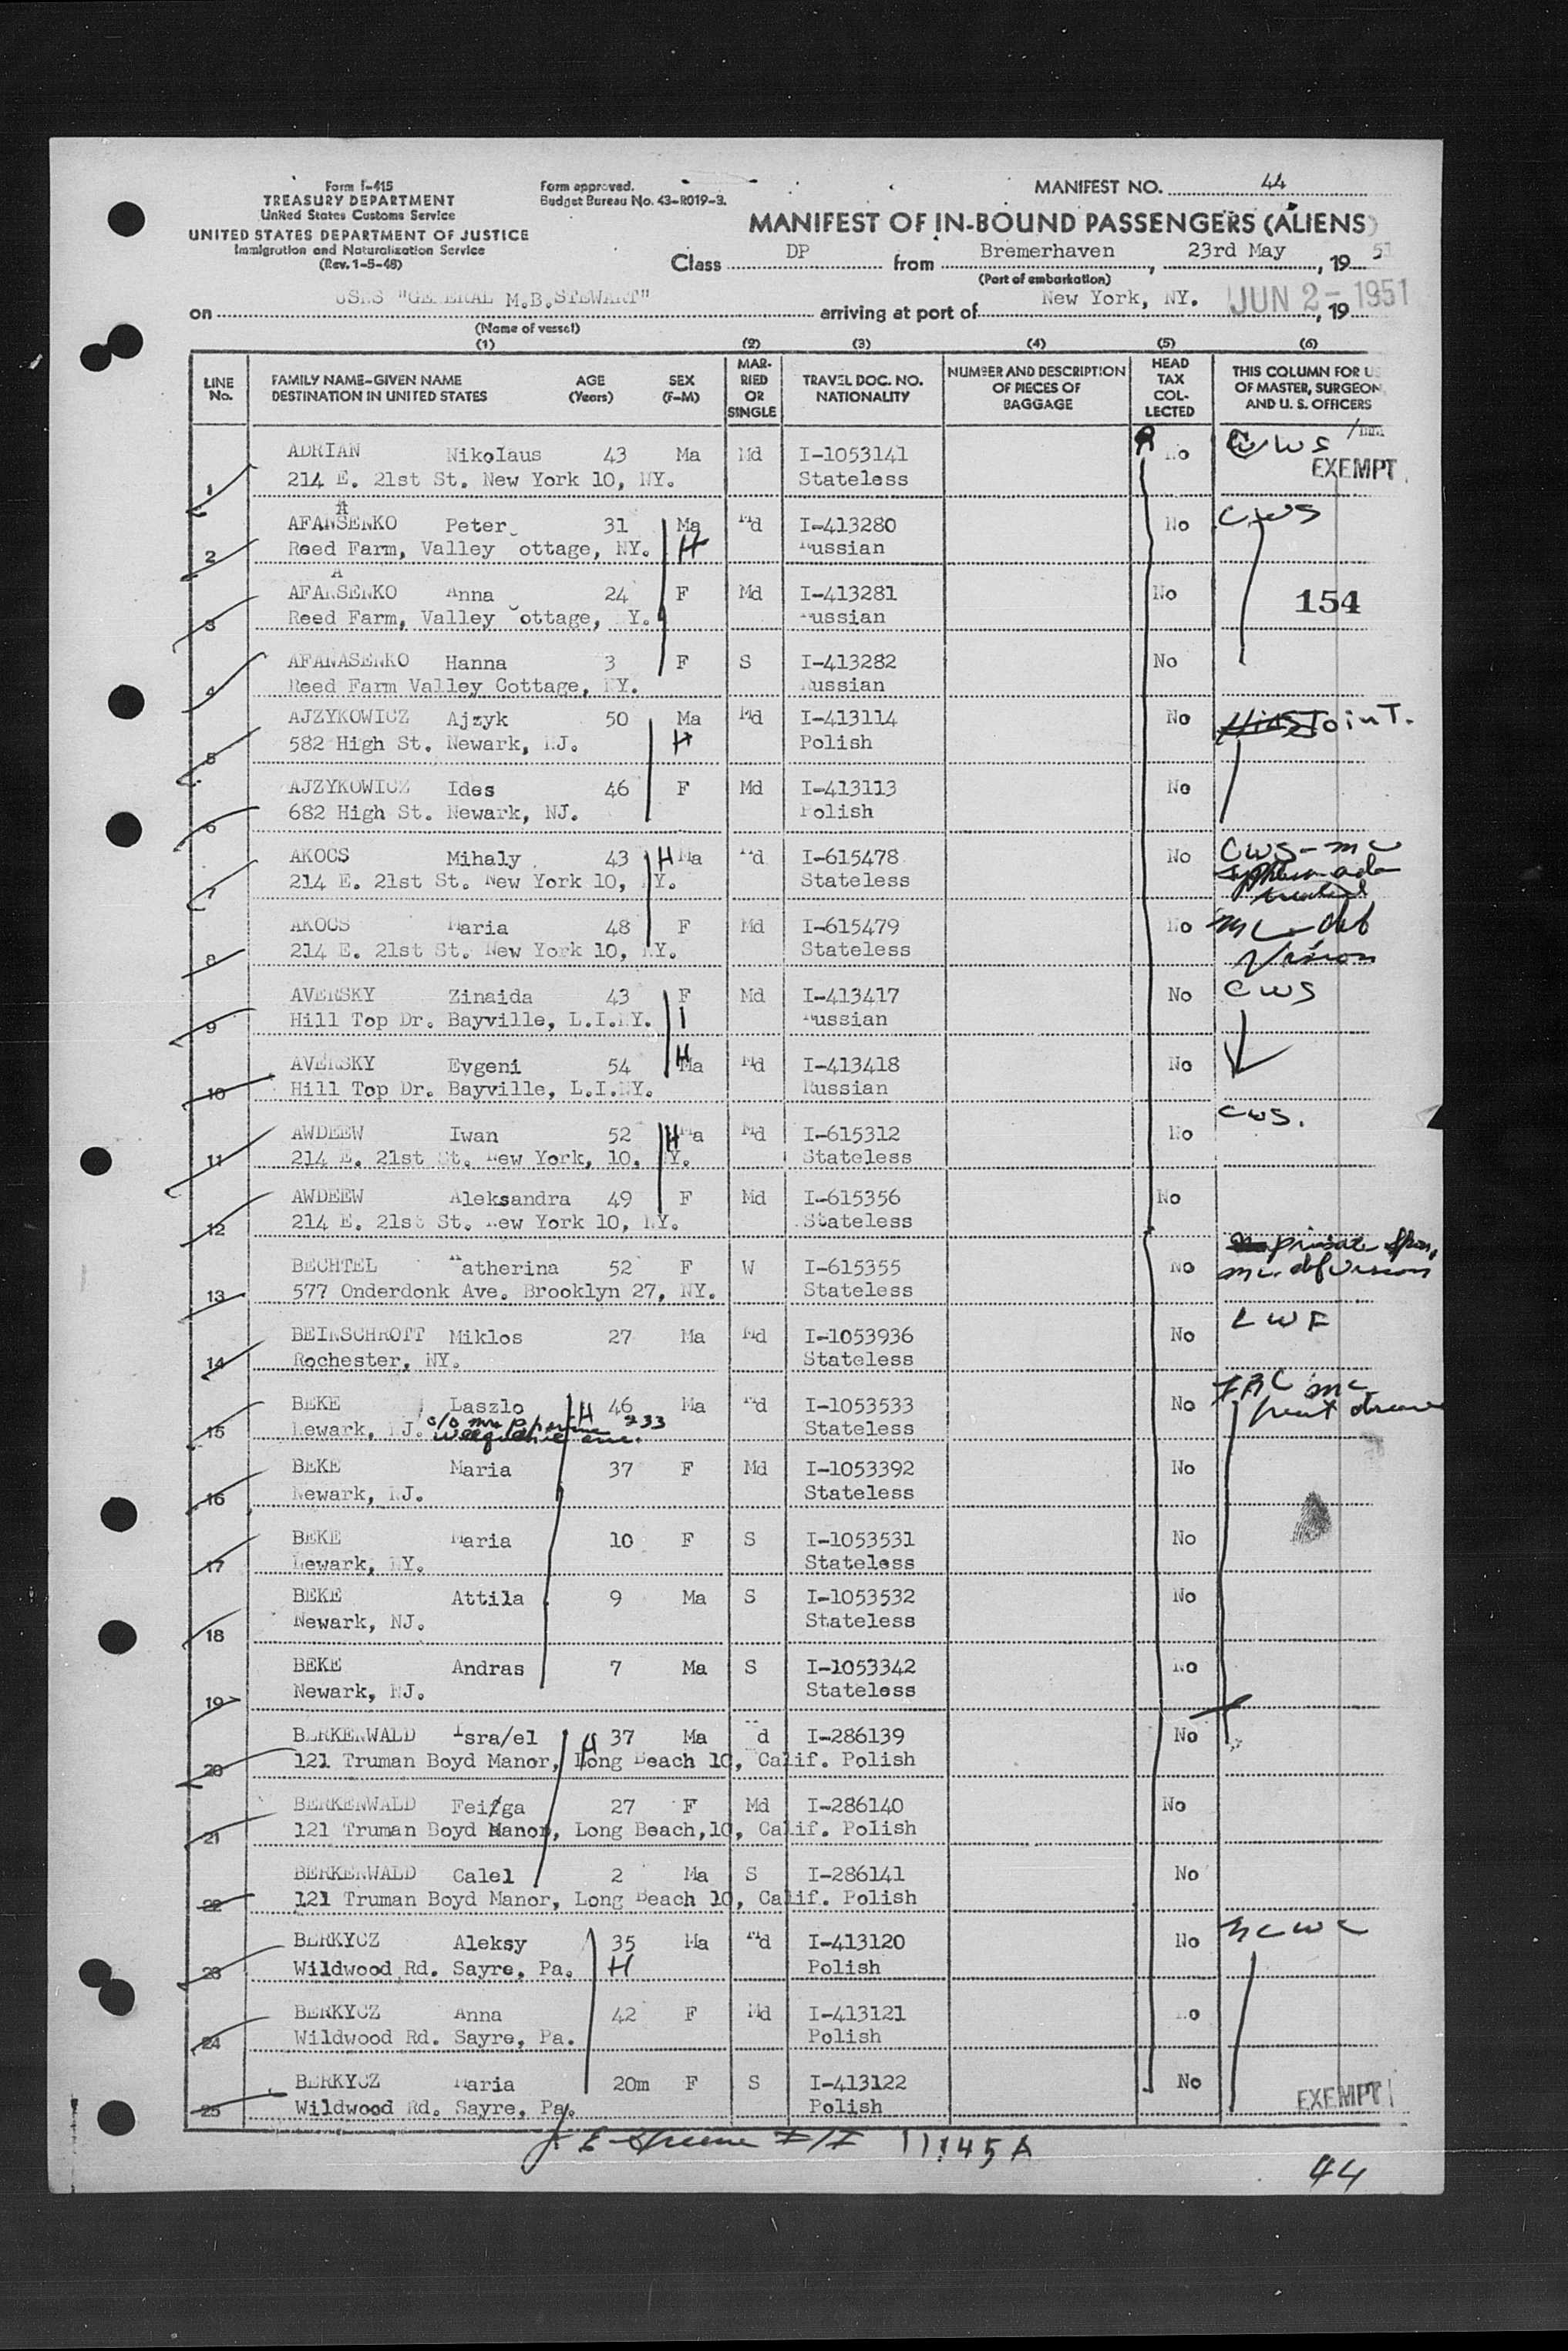 Form I-415
TREASURY DEPARTMENT
United States Customs Service
UNITED STATES DEPARTMENT OF JUSTICE
Immigration and Naturalization Service
(Rev. 1-5-48)
Form approved.
Budget Bureau No. 43-R019-3.
MANIFEST NO. 44
MANIFEST OF IN-BOUND PASSENGERS (ALIENS)
Class DP from Bremerhaven, 23rd May, 1951
(Port of embarkation)
on USNS "GENERAL M.B.STEWART" arriving at port of New York, NY. JUN 2 - 1951, 19
(Name of vessel)
(1) (2) (3) (4) (5) (6)
LINE No. FAMILY NAME-GIVEN NAME DESTINATION IN UNITED STATES AGE (Years) SEX (F-M) MARRIED OR SINGLE TRAVEL DOC. NO. NATIONALITY NUMBER AND DESCRIPTION OF PIECES OF BAGGAGE HEAD TAX COLLECTED THIS COLUMN FOR U OF MASTER, SURGEON, AND U. S. OFFICERS
ADRIAN Nikolaus 43 Ma Md I-1053141 No CWS
1 214 E. 21st St. New York 10, NY. Stateless EXEMPT
A
AFANSENKO Peter 31 Ma Md I-413280 No CWS
2 Reed Farm, Valley Cottage, NY. H Russian
A
AFANSENKO Anna 24 F Md I-413281 No 154
3 Reed Farm, Valley Cottage, NY. Russian
AFANASENKO Hanna 3 F S I-413282 No
4 Reed Farm Valley Cottage, NY. Russian
AJZYKOWICZ Ajzyk 50 Ma Md I-413114 No Hias Joint.
5 582 High St. Newark, NJ. H Polish
AJZYKOWICZ Ides 46 F Md I-413113 No
6 682 High St. Newark, NJ. Polish
AKOCS Mihaly 43 H Ma Md I-615478 No CWS - mc
7 214 E. 21st St. New York 10, NY. Stateless
AKOCS Maria 48 F Md I-615479 No mc - def
8 214 E. 21st St. New York 10, NY. Stateless Vision
AVERSKY Zinaida 43 F Md I-413417 No CWS
9 Hill Top Dr. Bayville, L.I.NY. Russian
AVERSKY Evgeni 54 H Ma Md I-413418 No
10 Hill Top Dr. Bayville, L.I.NY. Russian
AWDEEW Iwan 52 H Ma Md I-615312 No CWS.
11 214 E. 21st St. New York, 10, NY. Stateless
AWDEEW Aleksandra 49 F Md I-615356 No
12 214 E. 21st St. New York 10, NY. Stateless
BECHTEL Katherina 52 F W I-615355 No private spon. mc. def vision
13 577 Onderdonk Ave. Brooklyn 27, NY. Stateless
BEINSCHROTT Miklos 27 Ma Md I-1053936 No LWF
14 Rochester, NY. Stateless
BEKE Laszlo H 46 Ma Md I-1053533 No IRC mc
15 Newark, NJ. c/o Mrs 233 ave. Stateless
BEKE Maria 37 F Md I-1053392 No
16 Newark, NJ. Stateless
BEKE Maria 10 F S I-1053531 No
17 Newark, NY. Stateless
BEKE Attila 9 Ma S I-1053532 No
18 Newark, NJ. Stateless
BEKE Andras 7 Ma S I-1053342 No
19 Newark, NJ. Stateless
BERKENWALD Isra/el H 37 Ma Md I-286139 No
20 121 Truman Boyd Manor, Long Beach 10, Calif. Polish
BERKENWALD Fei/ga 27 F Md I-286140 No
21 121 Truman Boyd Manor, Long Beach,10, Calif. Polish
BERKENWALD Calel 2 Ma S I-286141 No
22 121 Truman Boyd Manor, Long Beach 10, Calif. Polish
BERKYCZ Aleksy 35 Ma Md I-413120 No NCWC
23 Wildwood Rd. Sayre, Pa. H Polish
BERKYCZ Anna 42 F Md I-413121 No
24 Wildwood Rd. Sayre, Pa. Polish
BERKYCZ Maria 20m F S I-413122 No
25 Wildwood Rd. Sayre, Pa. Polish EXEMPT
11145A
44